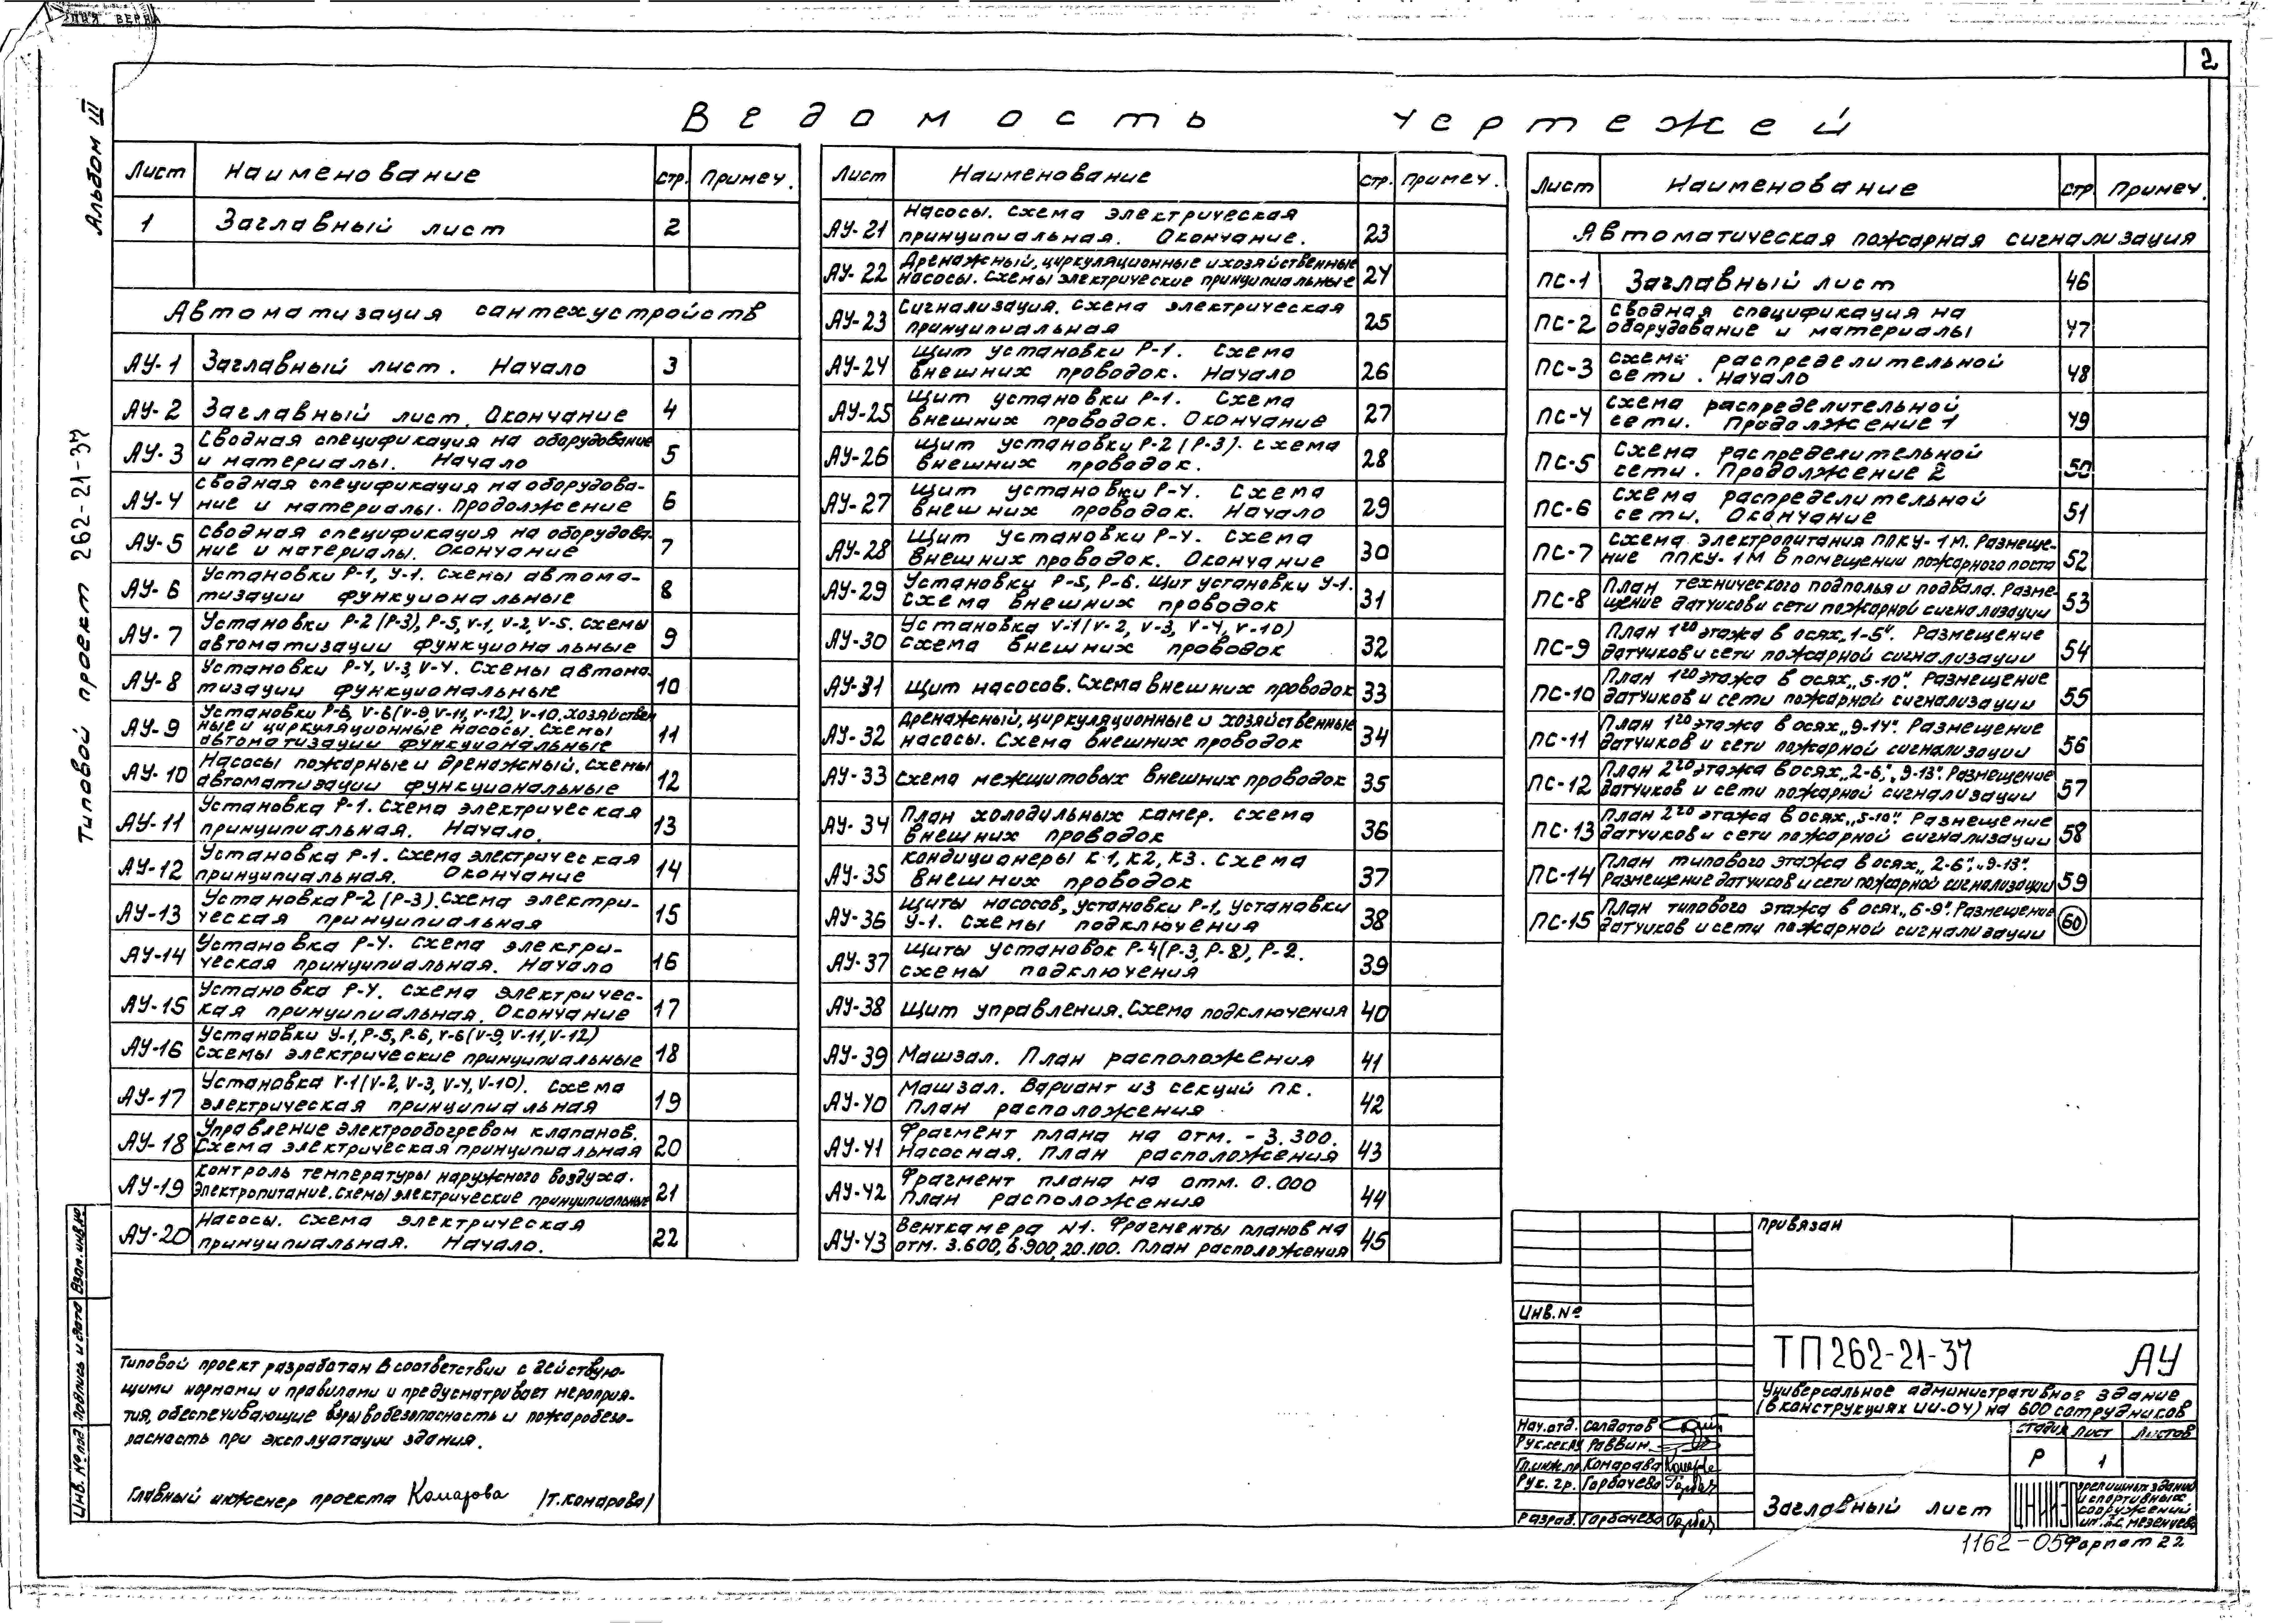 2
Альбом III
Типовой проект 262-21-37
Ведомость чертежей
Лист Наименование стр. Примеч.
1 Заглавный лист 2
Автоматизация сантехустройств
АУ-1 Заглавный лист. Начало 3
АУ-2 Заглавный лист. Окончание 4
АУ-3 Сводная спецификация на оборудование
и материалы. Начало 5
АУ-4 Сводная спецификация на оборудова-
ние и материалы. Продолжение 6
АУ-5 Сводная спецификация на оборудова-
ние и материалы. Окончание 7
АУ-6 Установки Р-1, У-1. Схемы автома-
тизации функциональные 8
АУ-7 Установки Р-2 (Р-3), Р-5, V-1, V-2, V-5. Схемы
автоматизации функциональные 9
АУ-8 Установки Р-4, V-3, V-4. Схемы автома-
тизации функциональные 10
АУ-9 Установки Р-6, V-6 (V-9, V-11, V-12), V-10. Хозяйствен
ные и циркуляционные насосы. Схемы
автоматизации функциональные 11
АУ-10 Насосы пожарные и дренажный. Схемы
автоматизации функциональные 12
АУ-11 Установка Р-1. Схема электрическая
принципиальная. Начало. 13
АУ-12 Установка Р-1. Схема электрическая
принципиальная. Окончание 14
АУ-13 Установка Р-2 (Р-3). Схема электри-
ческая принципиальная 15
АУ-14 Установка Р-4. Схема электри-
ческая принципиальная. Начало 16
АУ-15 Установка Р-4. Схема электричес-
кая принципиальная. Окончание 17
АУ-16 Установки У-1, Р-5, Р-6, V-6 (V-9, V-11, V-12)
Схемы электрические принципиальные 18
АУ-17 Установка V-1 (V-2, V-3, V-4, V-10). Схема
электрическая принципиальная 19
АУ-18 Управление электрообогревом клапанов.
Схема электрическая принципиальная 20
АУ-19 Контроль температуры наружного воздуха.
Электропитание. Схемы электрические принципиальные 21
АУ-20 Насосы. Схема электрическая
принципиальная. Начало. 22
Лист Наименование стр. Примеч.
АУ-21 Насосы. Схема электрическая
принципиальная. Окончание. 23
АУ-22 Дренажный, циркуляционные и хозяйственные
насосы. Схемы электрические принципиальные 24
АУ-23 Сигнализация. Схема электрическая
принципиальная 25
АУ-24 Щит установки Р-1. Схема
внешних проводок. Начало 26
АУ-25 Щит установки Р-1. Схема
внешних проводок. Окончание 27
АУ-26 Щит установки Р-2 (Р-3). Схема
внешних проводок. 28
АУ-27 Щит установки Р-4. Схема
внешних проводок. Начало 29
АУ-28 Щит установки Р-4. Схема
внешних проводок. Окончание 30
АУ-29 Установки Р-5, Р-6. Щит установки У-1.
Схема внешних проводок 31
АУ-30 Установка V-1 (V-2, V-3, V-4, V-10)
Схема внешних проводок 32
АУ-31 Щит насосов. Схема внешних проводок 33
АУ-32 Дренажный, циркуляционные и хозяйственные
насосы. Схема внешних проводок 34
АУ-33 Схема межщитовых внешних проводок 35
АУ-34 План холодильных камер. Схема
внешних проводок 36
АУ-35 Кондиционеры К1, К2, К3. Схема
внешних проводок 37
АУ-36 Щиты насосов, установки Р-1, установки
У-1. Схемы подключения 38
АУ-37 Щиты установок Р-4 (Р-3, Р-8), Р-2.
схемы подключения 39
АУ-38 Щит управления. Схема подключения 40
АУ-39 Машзал. План расположения 41
АУ-40 Машзал. Вариант из секций ПК.
План расположения 42
АУ-41 Фрагмент плана на отм. -3.300.
Насосная. План расположения 43
АУ-42 Фрагмент плана на отм. 0.000
План расположения 44
АУ-43 Венткамера N1. Фрагменты планов на
отм. 3.600, 6.900, 20.100. План расположения 45
Лист Наименование стр Примеч.
Автоматическая пожарная сигнализация
ПС-1 Заглавный лист 46
ПС-2 Сводная спецификация на
оборудование и материалы 47
ПС-3 Схема распределительной
сети. Начало 48
ПС-4 Схема распределительной
сети. Продолжение 1 49
ПС-5 Схема распределительной
сети. Продолжение 2 50
ПС-6 Схема распределительной
сети. Окончание 51
ПС-7 Схема электропитания ППКУ-1М. Размеще-
ние ППКУ-1М в помещении пожарного поста 52
ПС-8 План технического подполья и подвала. Разме-
щение датчиков и сети пожарной сигнализации 53
ПС-9 План 1го этажа в осях „1-5". Размещение
датчиков и сети пожарной сигнализации 54
ПС-10 План 1го этажа в осях „5-10". Размещение
датчиков и сети пожарной сигнализации 55
ПС-11 План 1го этажа в осях „9-14". Размещение
датчиков и сети пожарной сигнализации 56
ПС-12 План 2го этажа в осях „2-6", „9-13". Размещение
датчиков и сети пожарной сигнализации 57
ПС-13 План 2го этажа в осях „5-10". Размещение
датчиков и сети пожарной сигнализации 58
ПС-14 План типового этажа в осях „2-6", „9-13".
Размещение датчиков и сети пожарной сигнализации 59
ПС-15 План типового этажа в осях „6-9". Размещение
датчиков и сети пожарной сигнализации 60
Типовой проект разработан в соответствии с действую-
щими нормами и правилами и предусматривает мероприя-
тия, обеспечивающие взрывобезопасность и пожаробезо-
пасность при эксплуатации здания.
Главный инженер проекта Комарова /Т. Комарова/
Инв. № под. Подпись и дата Взам. инв. №
Привязан
Инв. №
ТП 262-21-37 АУ
Универсальное административное здание
(в конструкциях ИИ-04) на 600 сотрудников
Нач. отд. Солдатов
Рук. сек. АУ Раввин
Гл. инж. пр. Комарова
Рук. гр. Горбачева
Разраб. Горбачева
Стадия Лист Листов
Р 1
Заглавный лист
ЦНИИЭП зрелищных зданий
и спортивных
сооружений
им. Б.С. Мезенцева
1162-05 Формат 22